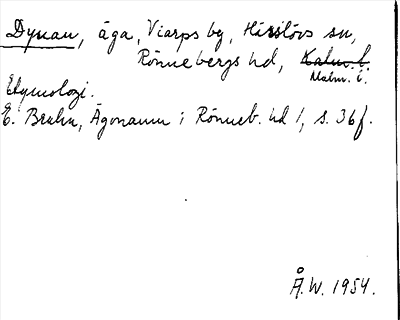 Dynan, äga, Viarps by, Härslövs sn,
Rönnebergs hd, Kalm. l.
Malm. l.
Etymologi.
E. Bruhn, Ägonamn i Rönneb. hd 1, s. 36f.
Å.W. 1954.